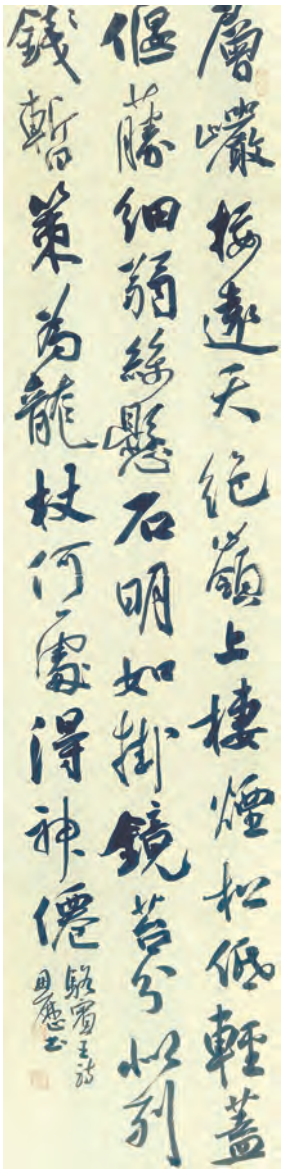 層巖接遠天絕嶺上棲煙松低輕蓋
偃藤細弱絲懸石明如掛鏡苔分似列
錢暫策為龍杖何處得神僊
駱賓王詩
书